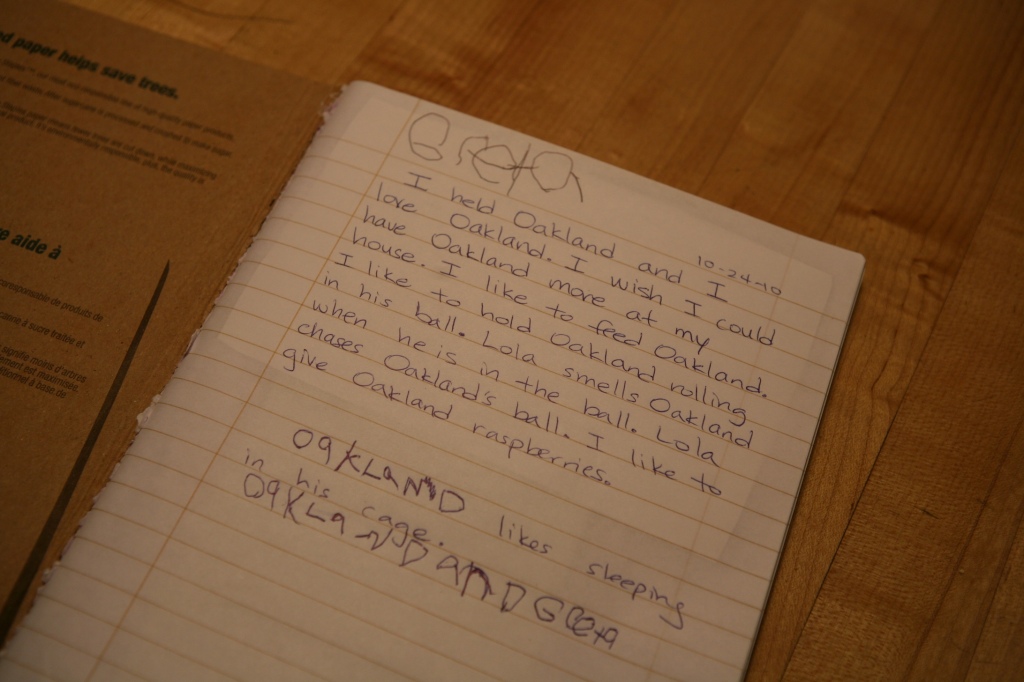 ed paper helps save trees.
e aide à
corresponsable de produits de
canne à sucre traitée et
signifie moins d'arbres
Greta
10-24-10
I held Oakland and I
love Oakland. I wish I could
have Oakland more at my
house. I like to feed Oakland.
I like to hold Oakland rolling
in his ball. Lola smells Oakland
when he is in the ball. Lola
chases Oakland's ball. I like to
give Oakland raspberries.
OaKLaND likes sleeping
in his cage.
OaKLaND aND Greta